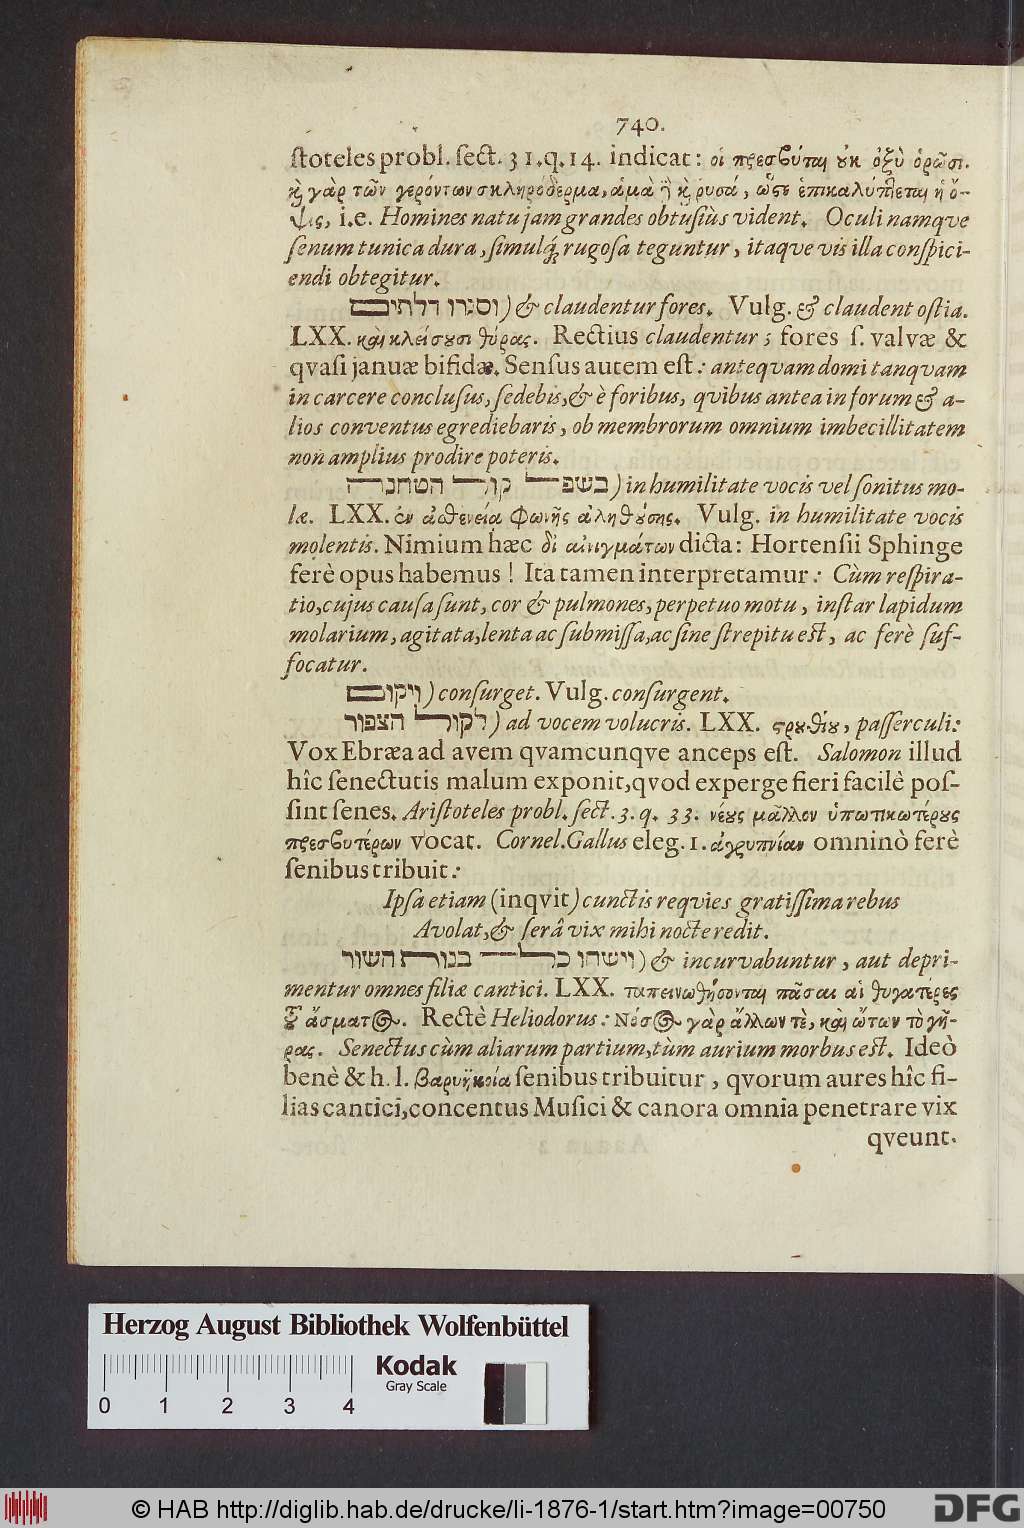 740.
ſtoteles probl. ſect. 31. q. 14. indicat: οἱ πρεσβύται ȣκ ὀξὺ ὁρῶσι.
ϗ̀ γὰρ τῶν γερόντων σκληρόδερμα, ἁμὰ ἢ ϗ̀ ῥυσά, ὥϛε ἐπικαλύπτεται ἡ ὄ-
ψις, i.e. Homines natu jam grandes obtuſiùs vident. Oculi namque
ſenum tunica dura, ſimulq́; rugoſa teguntur, itaque vis illa conſpici-
endi obtegitur.
וסגרו דלתים) & claudentur fores. Vulg. & claudent oſtia.
LXX. καὶ κλείσȣσι θύρας. Rectius claudentur; fores ſ. valvæ &
qvaſi januæ bifidæ. Senſus autem eſt: antequam domi tanquam
in carcere concluſus, ſedebis, & è foribus, qvibus antea in forum & a-
lios conventus egrediebaris, ob membrorum omnium imbecillitatem
non amplius prodire poteris.
בשפל קול הטחנה) in humilitate vocis vel ſonitus mo-
læ. LXX. ἐν ἀσθενείᾳ φωνῆς ἀληθȣ́σης. Vulg. in humilitate vocis
molentis. Nimium hæc δι᾽ αἰνιγμάτων dicta: Hortenſii Sphinge
ferè opus habemus! Ita tamen interpretamur: Cùm reſpira-
tio, cujus cauſa ſunt, cor & pulmones, perpetuo motu, inſtar lapidum
molarium, agitata, lenta ac ſubmiſſa, ac ſine ſtrepitu eſt, ac ferè ſuf-
focatur.
ויקום) conſurget. Vulg. conſurgent.
לקול הצפור) ad vocem volucris. LXX. ϛρȣθίȣ, paſſerculi:
Vox Ebræa ad avem qvamcunqve anceps eſt. Salomon illud
hîc ſenectutis malum exponit, qvod expergefieri facilè poſ-
ſint ſenes. Ariſtoteles probl. ſect. 3. q. 33. νέȣς μᾶλλον ὑπωτικωτέρȣς
πρεσβυτέρων vocat. Cornel. Gallus eleg. 1. ἀγρυπνίαν omninò ferè
ſenibus tribuit:
Ipſa etiam (inqvit) cunctis reqvies gratiſſima rebus
Avolat, & ſerâ vix mihi nocte redit.
וישחו כל־בנות השור) & incurvabuntur, aut depri-
mentur omnes filiæ cantici. LXX. ταπεινωθήσονται πᾶσαι αἱ θυγατέρες
τȣ͂ ᾄσματος. Rectè Heliodorus: Νόσος γὰρ ἄλλων τὲ, καὶ ὤτων τὸ γῆ-
ρας. Senectus cùm aliarum partium, tùm aurium morbus eſt. Ideò
benè & h. l. βαρυηκοία ſenibus tribuitur, qvorum aures hîc fi-
lias cantici, concentus Muſici & canora omnia penetrare vix
qveunt.
Herzog August Bibliothek Wolfenbüttel
Kodak
Gray Scale
0 1 2 3 4
© HAB http://diglib.hab.de/drucke/li-1876-1/start.htm?image=00750
DFG